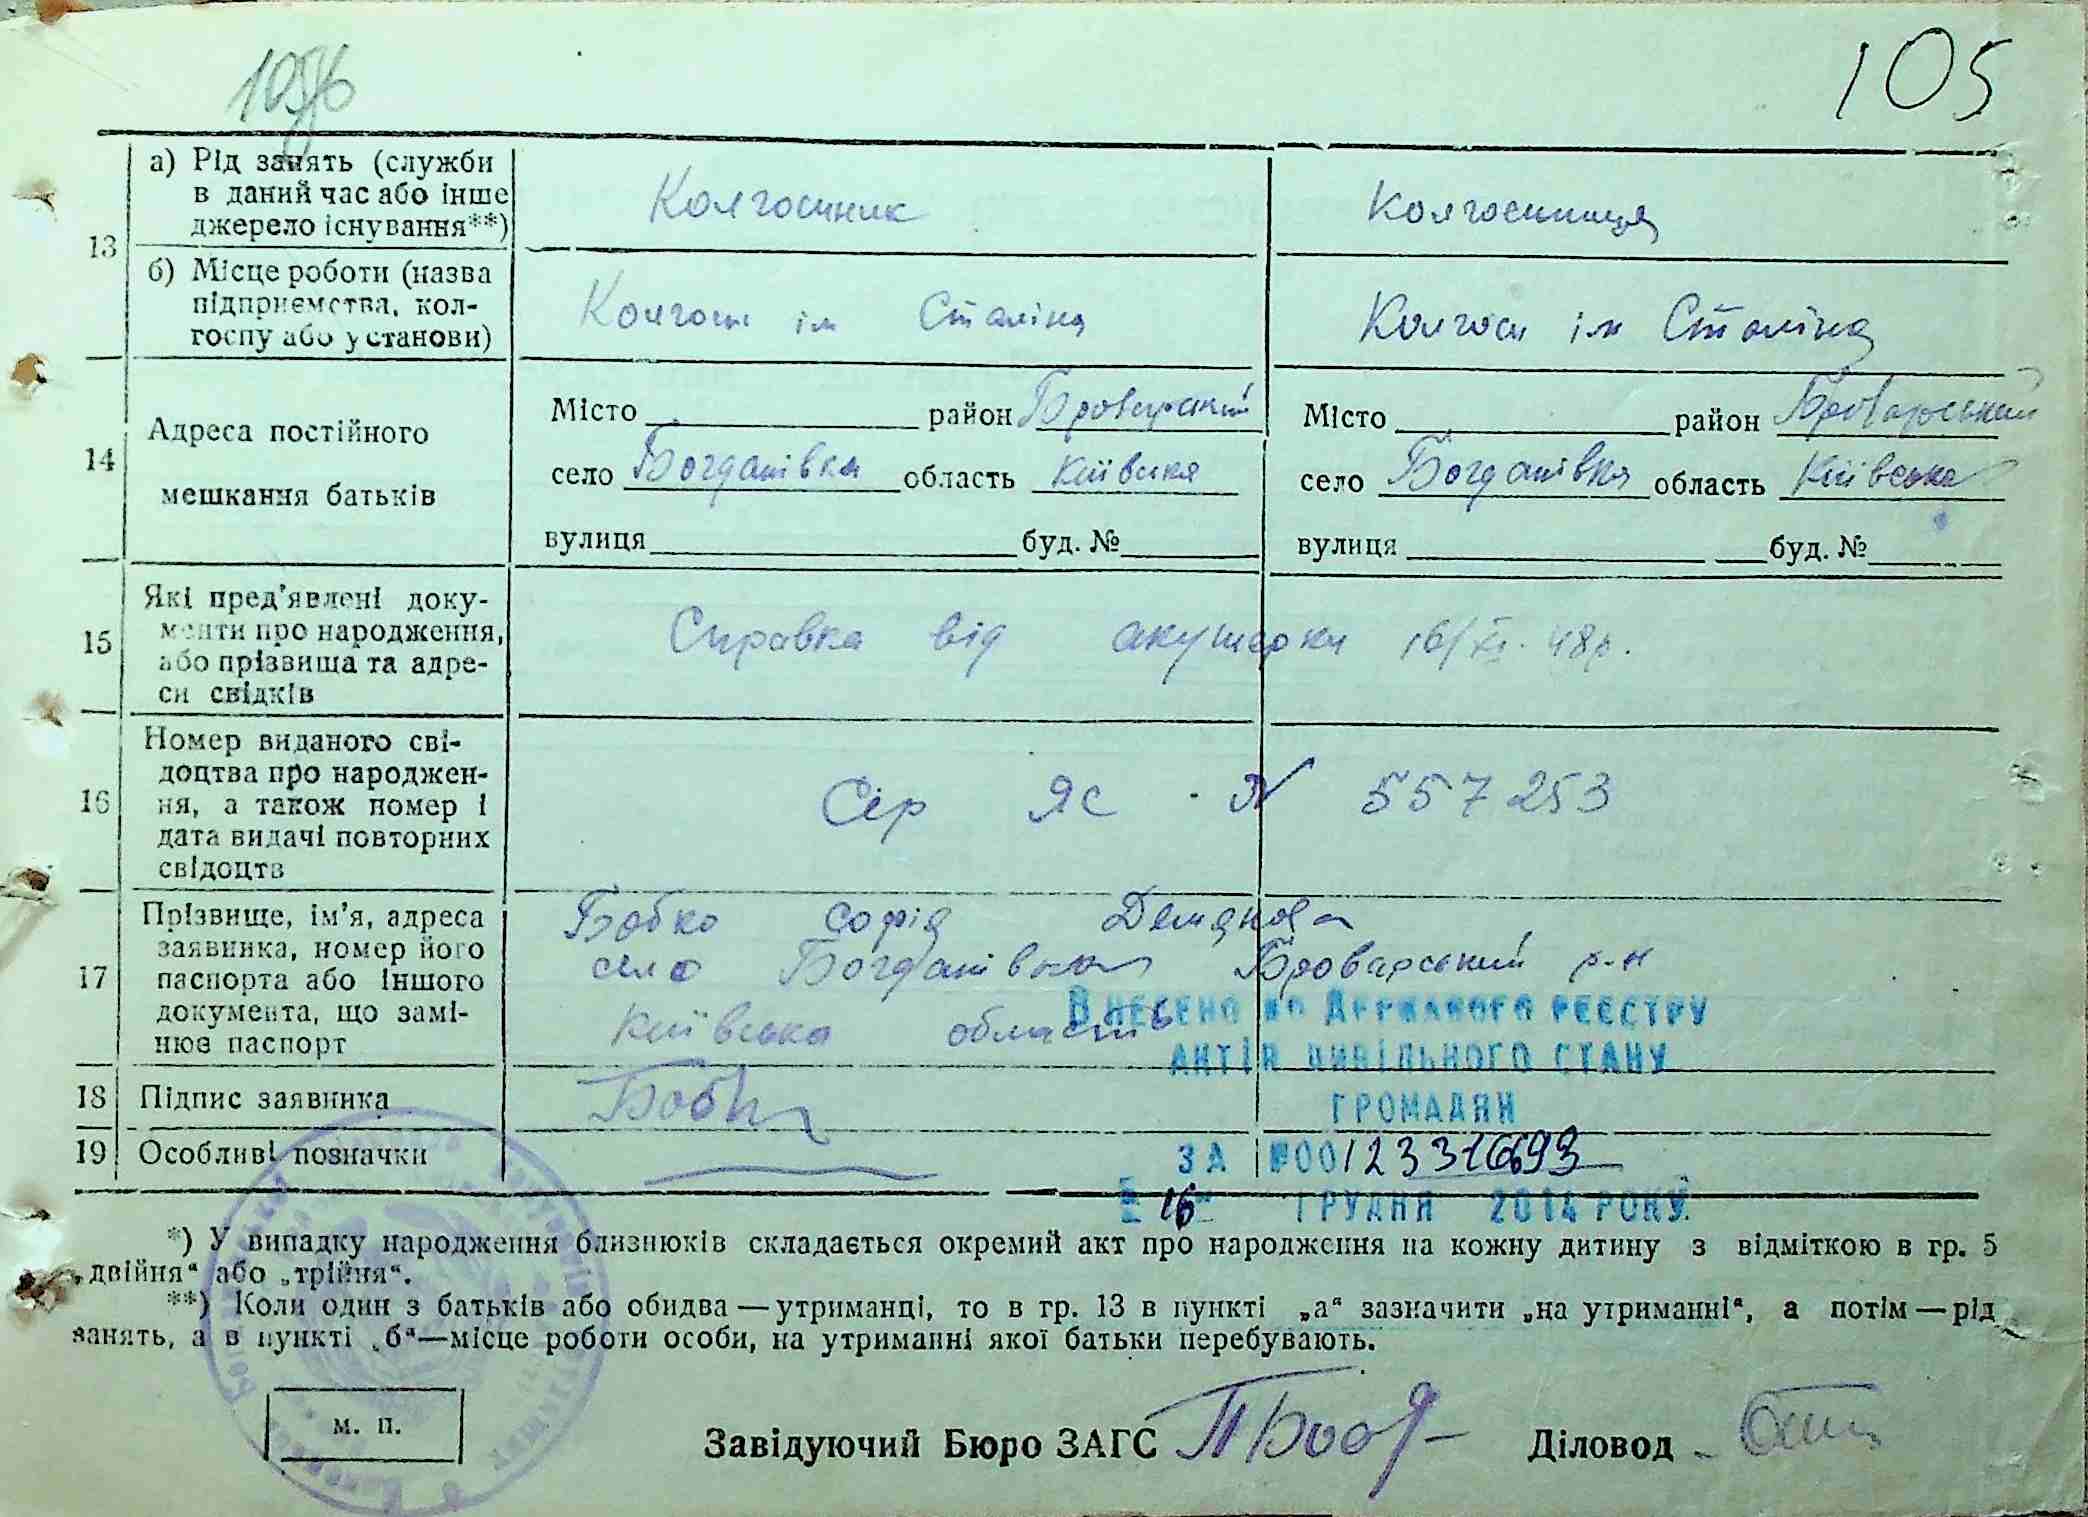 105
а) Рід занять (служби в даний час або інше джерело існування**)
Колгоспник
Колгоспниця
13
б) Місце роботи (назва підприємства, колгоспу або установи)
Колгосп ім Сталіна
Колгосп ім Сталіна
14
Адреса постійного мешкання батьків
Місто район Броварський
село Богданівка область Київська
вулиця буд. №
Місто район Броварський
село Богданівка область Київська
вулиця буд. №
15
Які пред'явлені доку-
менти про народження,
або прізвища та адре-
си свідків
Справка від акушерки 16/XI. 48р.
16
Номер виданого сві-
доцтва про народжен-
ня, а також номер і
дата видачі повторних
свідоцтв
Сер ЯС N 557253
17
Прізвище, ім'я, адреса
заявника, номер його
паспорта або іншого
документа, що замі-
нює паспорт
Бобко Софія Демянова
село Богданівка Броварський р-н
Київська область
ВНЕСЕНО ДО ДЕРЖАВНОГО РЕЄСТРУ
АКТІВ ЦИВІЛЬНОГО СТАНУ
ГРОМАДЯН
18 Підпис заявника
19 Особливі позначки
ЗА №00123316693
"16" ГРУДНЯ 2014 РОКУ.
*) У випадку народження близнюків складається окремий акт про народження на кожну дитину з відміткою в гр. 5
„двійня“ або „трійня“.
**) Коли один з батьків або обидва — утриманці, то в гр. 13 в пункті „а“ зазначити „на утриманні“, а потім — рід
занять, а в пункті „б“—місце роботи особи, на утриманні якої батьки перебувають.
м. п.
Завідуючий Бюро ЗАГС
Діловод